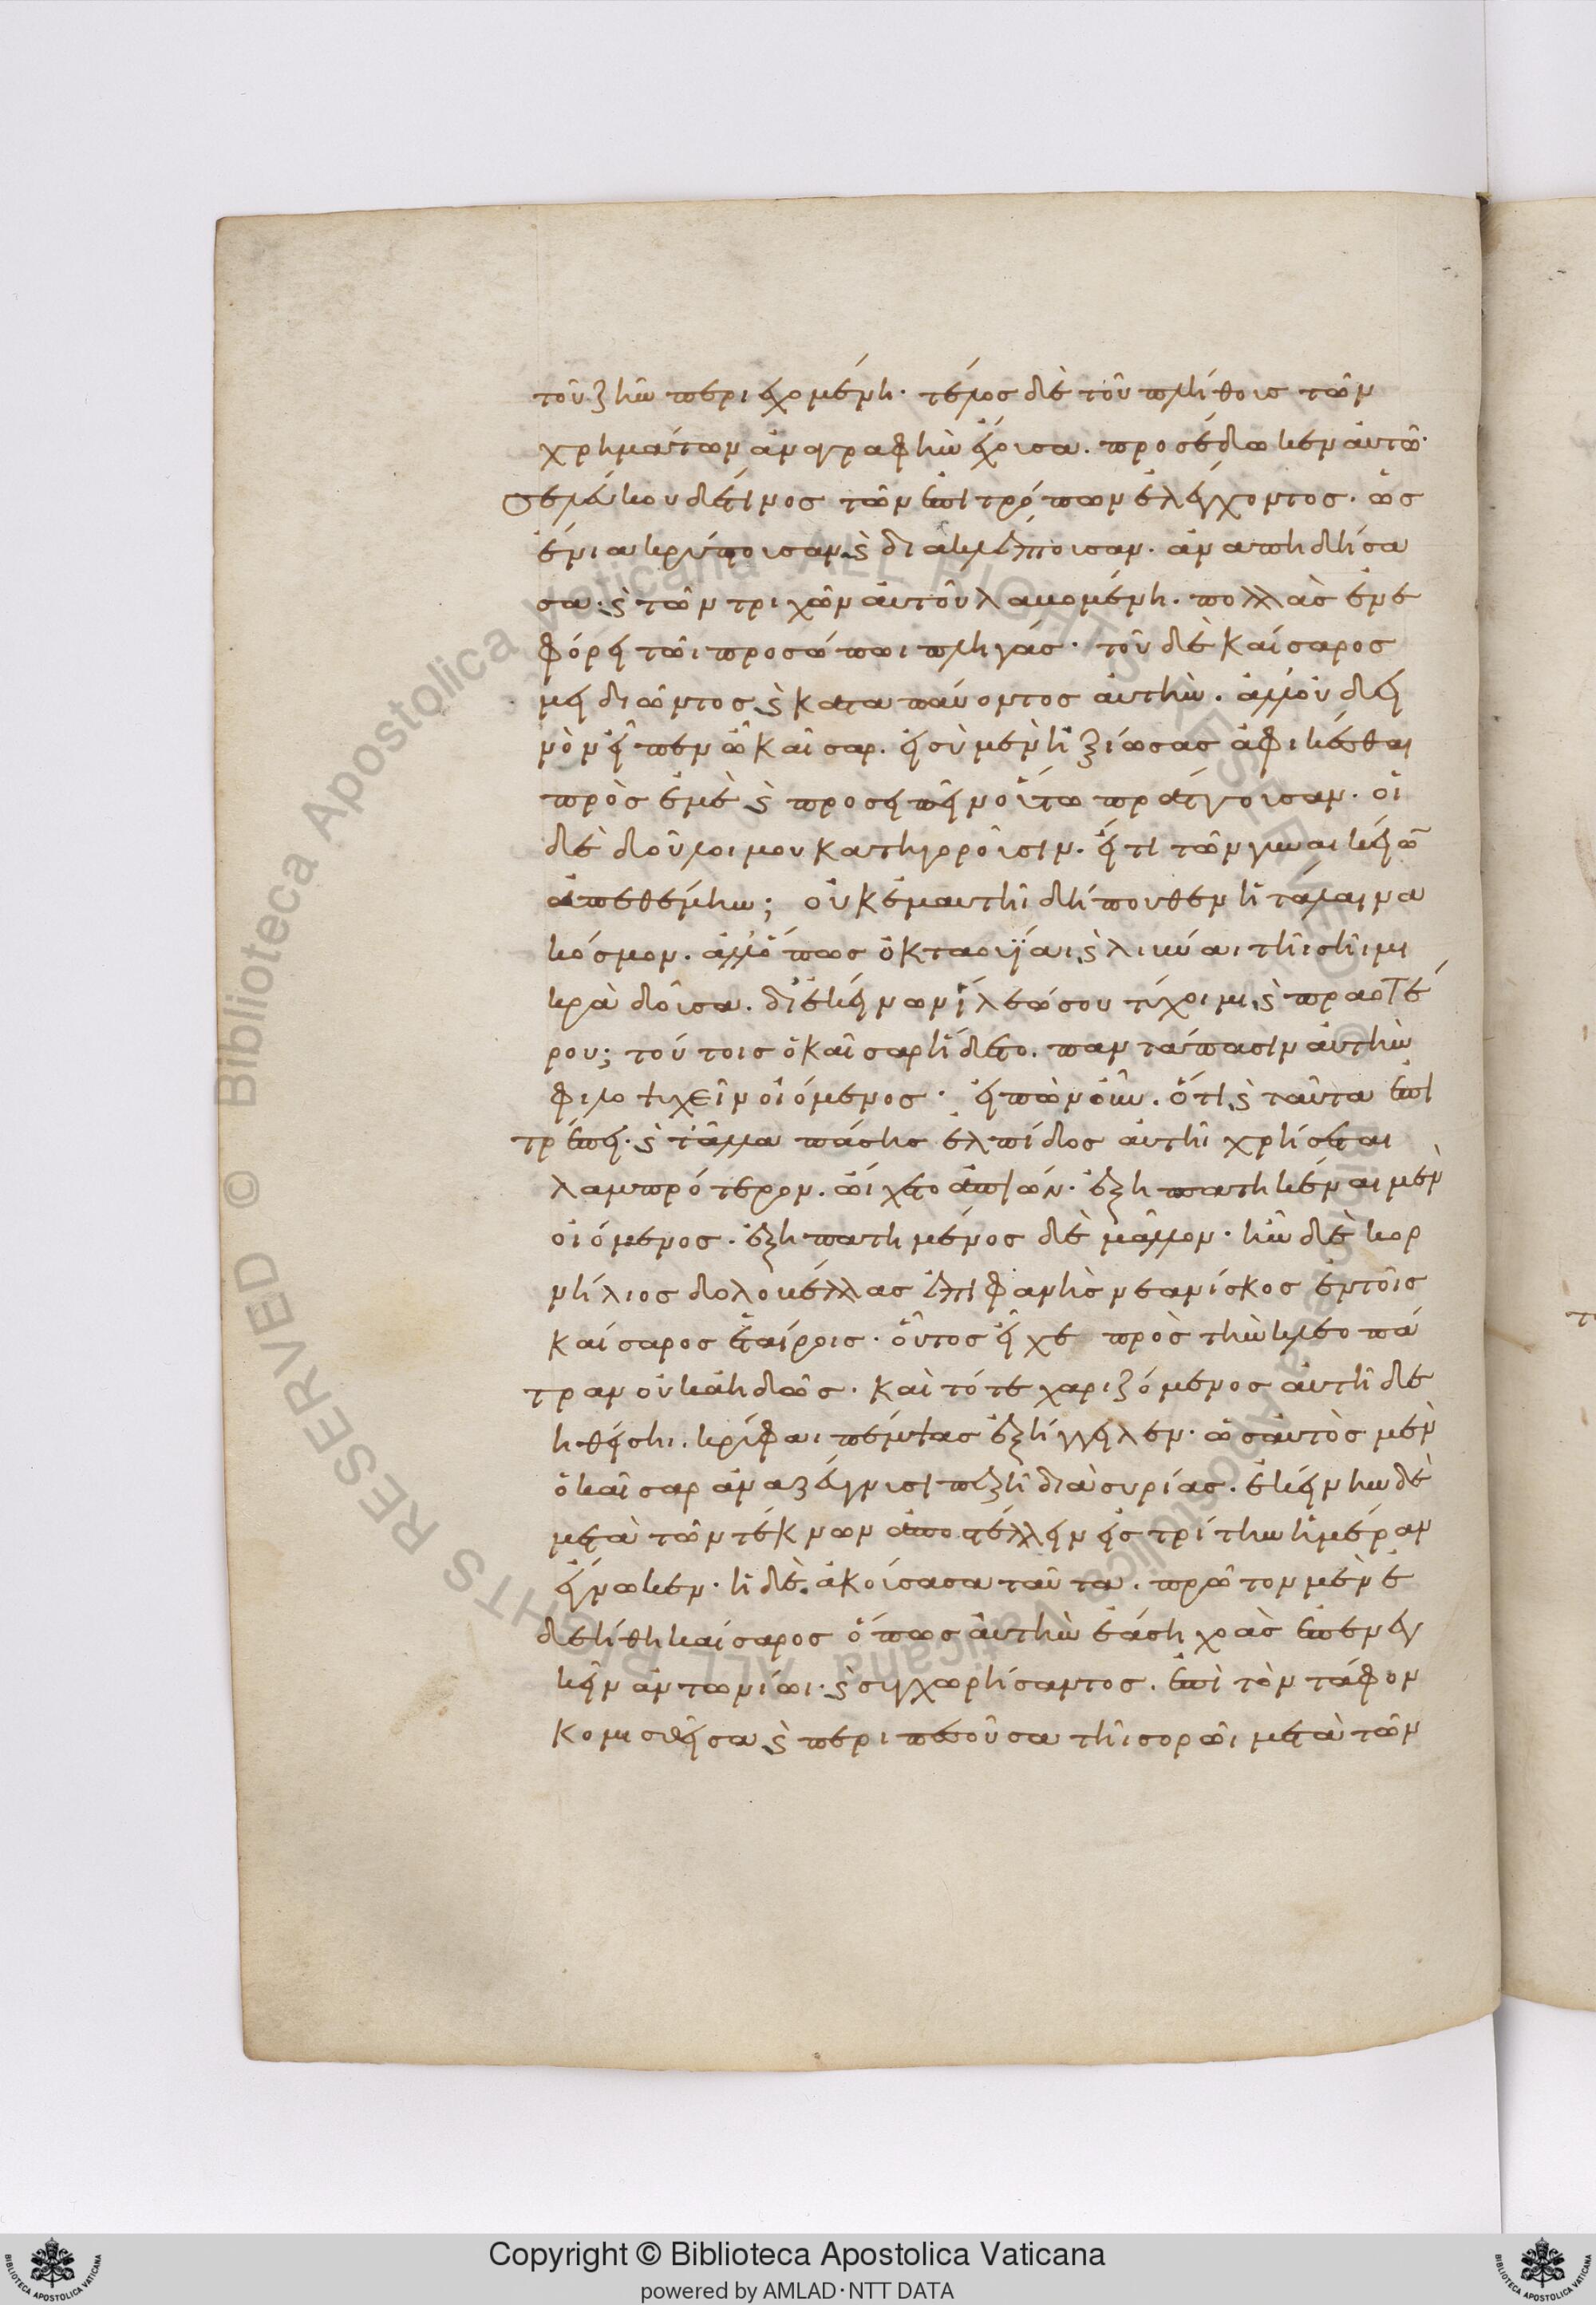 τοῦ ζῆν περιεχομένη· τέλος δὲ τοῦ πλήθους τῶν
χρημάτων ἀναγραφὴν ἔχουσα. προσέδωκεν αὐτῶ·
σελεύκου δέ τινος τῶν ἐπιτρόπων ἐλέγχοντος. ὡς
ἔνια κρύπτουσαν καὶ διακλέπτουσαν. ἀναπηδήσα
σα· καὶ τῶν τριχῶν αὐτοῦ λαβομένη. πολλὰς ἐνε
φόρει τῶι προσώπωι πληγάς· τοῦ δὲ Καίσαρος
μειδιῶντος καὶ καταπαύοντος αὐτήν. ἀλλ' οὐ δει
νὸν εἶπεν ὦ Καῖσαρ. εἰ σὺ μὲν ἠξίωσας ἀφικέσθαι
πρὸς ἐμὲ καὶ προσειπεῖν οὕτω πράττουσαν. οἱ
δὲ δοῦλοι μου κατηγοροῦσιν. εἴ τι τῶν γυναικείων
ἀπεθέμην; οὐκ ἐμαυτῆι δήπουθεν ἡ τάλαινα
κόσμον. ἀλλ' ὅπως ὀκταουίαι καὶ λιβύαι τῆι σῆι μι
κρὰ δοῦσα. δι' ἐκείνων ἵλεώ σου τύχοιμι καὶ πραοτέ
ρου; τούτοις ὁ Καῖσαρ ἥδετο. παντάπασιν αὐτὴν
φιλοψυχεῖν οἰόμενος· εἰπὼν οὖν. ὅτι καὶ ταῦτα ἐπι
τρέπει· καὶ τἆλλα πάσης ἐλπίδος αὐτῆι χρήσεται
λαμπρότερον. ὤιχετο ἀπιών· ἐξηπατηκέναι μὲν
οἰόμενος. ἐξηπατημένος δὲ μᾶλλον· ἦν δὲ κορ
νήλιος δολοβέλλας ἐπιφανὴς νεανίσκος ἐν τοῖς
Καίσαρος ἑταίροις· οὗτος εἶχε πρὸς τὴν κλεοπά
τραν οὐκ ἀηδῶς· καὶ τότε χαριζόμενος αὐτῆι δε
ηθείσηι. κρύφαι πέμψας ἐξήγγειλεν· ὡς αὐτὸς μὲν
ὁ καῖσαρ ἀναζεύγνυσι πεζῆι διὰ συρίας. ἐκείνην δὲ
μετὰ τῶν τέκνων ἀποστέλλειν εἰς τρίτην ἡμέραν
ἔγνωκεν· ἡ δὲ ἀκούσασα ταῦτα. πρῶτον μὲν ἐ
δεήθη καίσαρος ὅπως αὐτὴν ἐάσηι χοὰς ἐπενεγ
κεῖν ἀντωνίωι· καὶ συγχωρήσαντος. ἐπὶ τὸν τάφον
κομισθεῖσα καὶ περιπεσοῦσα τῆι σορῶι μετὰ τῶν
Copyright © Biblioteca Apostolica Vaticana
powered by AMLAD·NTT DATA